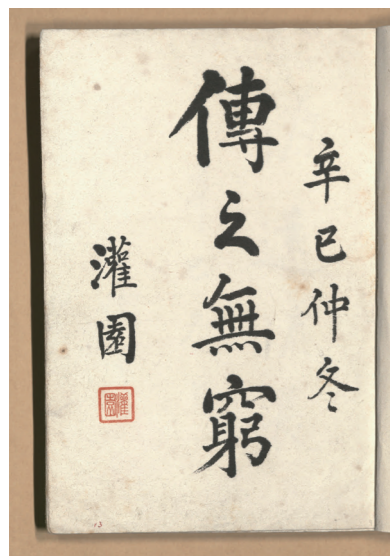 辛巳仲冬
傳之無窮
灌園
灌園